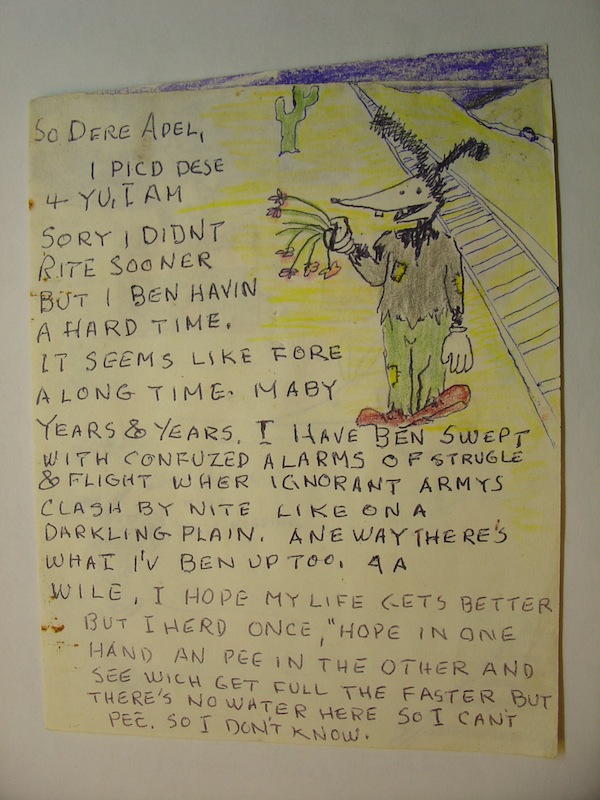 SO DERE ADEL,
I PICD DESE
4 YU, I AM
SORY I DIDNT
RITE SOONER
BUT I BEN HAVIN
A HARD TIME.
IT SEEMS LIKE FORE
A LONG TIME. MABY
YEARS & YEARS. I HAVE BEN SWEPT
WITH CONFUZED ALARMS OF STRUGLE
& FLIGHT WHER IGNORANT ARMYS
CLASH BY NITE LIKE ON A
DARKLING PLAIN. ANEWAY THERE'S
WHAT I'V BEN UP TOO. 4 A
WILE, I HOPE MY LIFE GETS BETTER
BUT I HERD ONCE, "HOPE IN ONE
HAND AN PEE IN THE OTHER AND
SEE WICH GET FULL THE FASTER BUT
THERE'S NO WATER HERE SO I CAN'T
PEE. SO I DON'T KNOW.